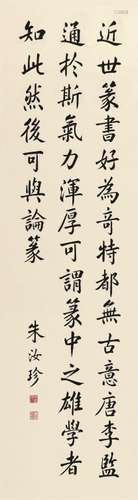 近世篆書好為奇特都無古意唐李監
通於斯氣力渾厚可謂篆中之雄學者
知此然後可與論篆
朱汝珍